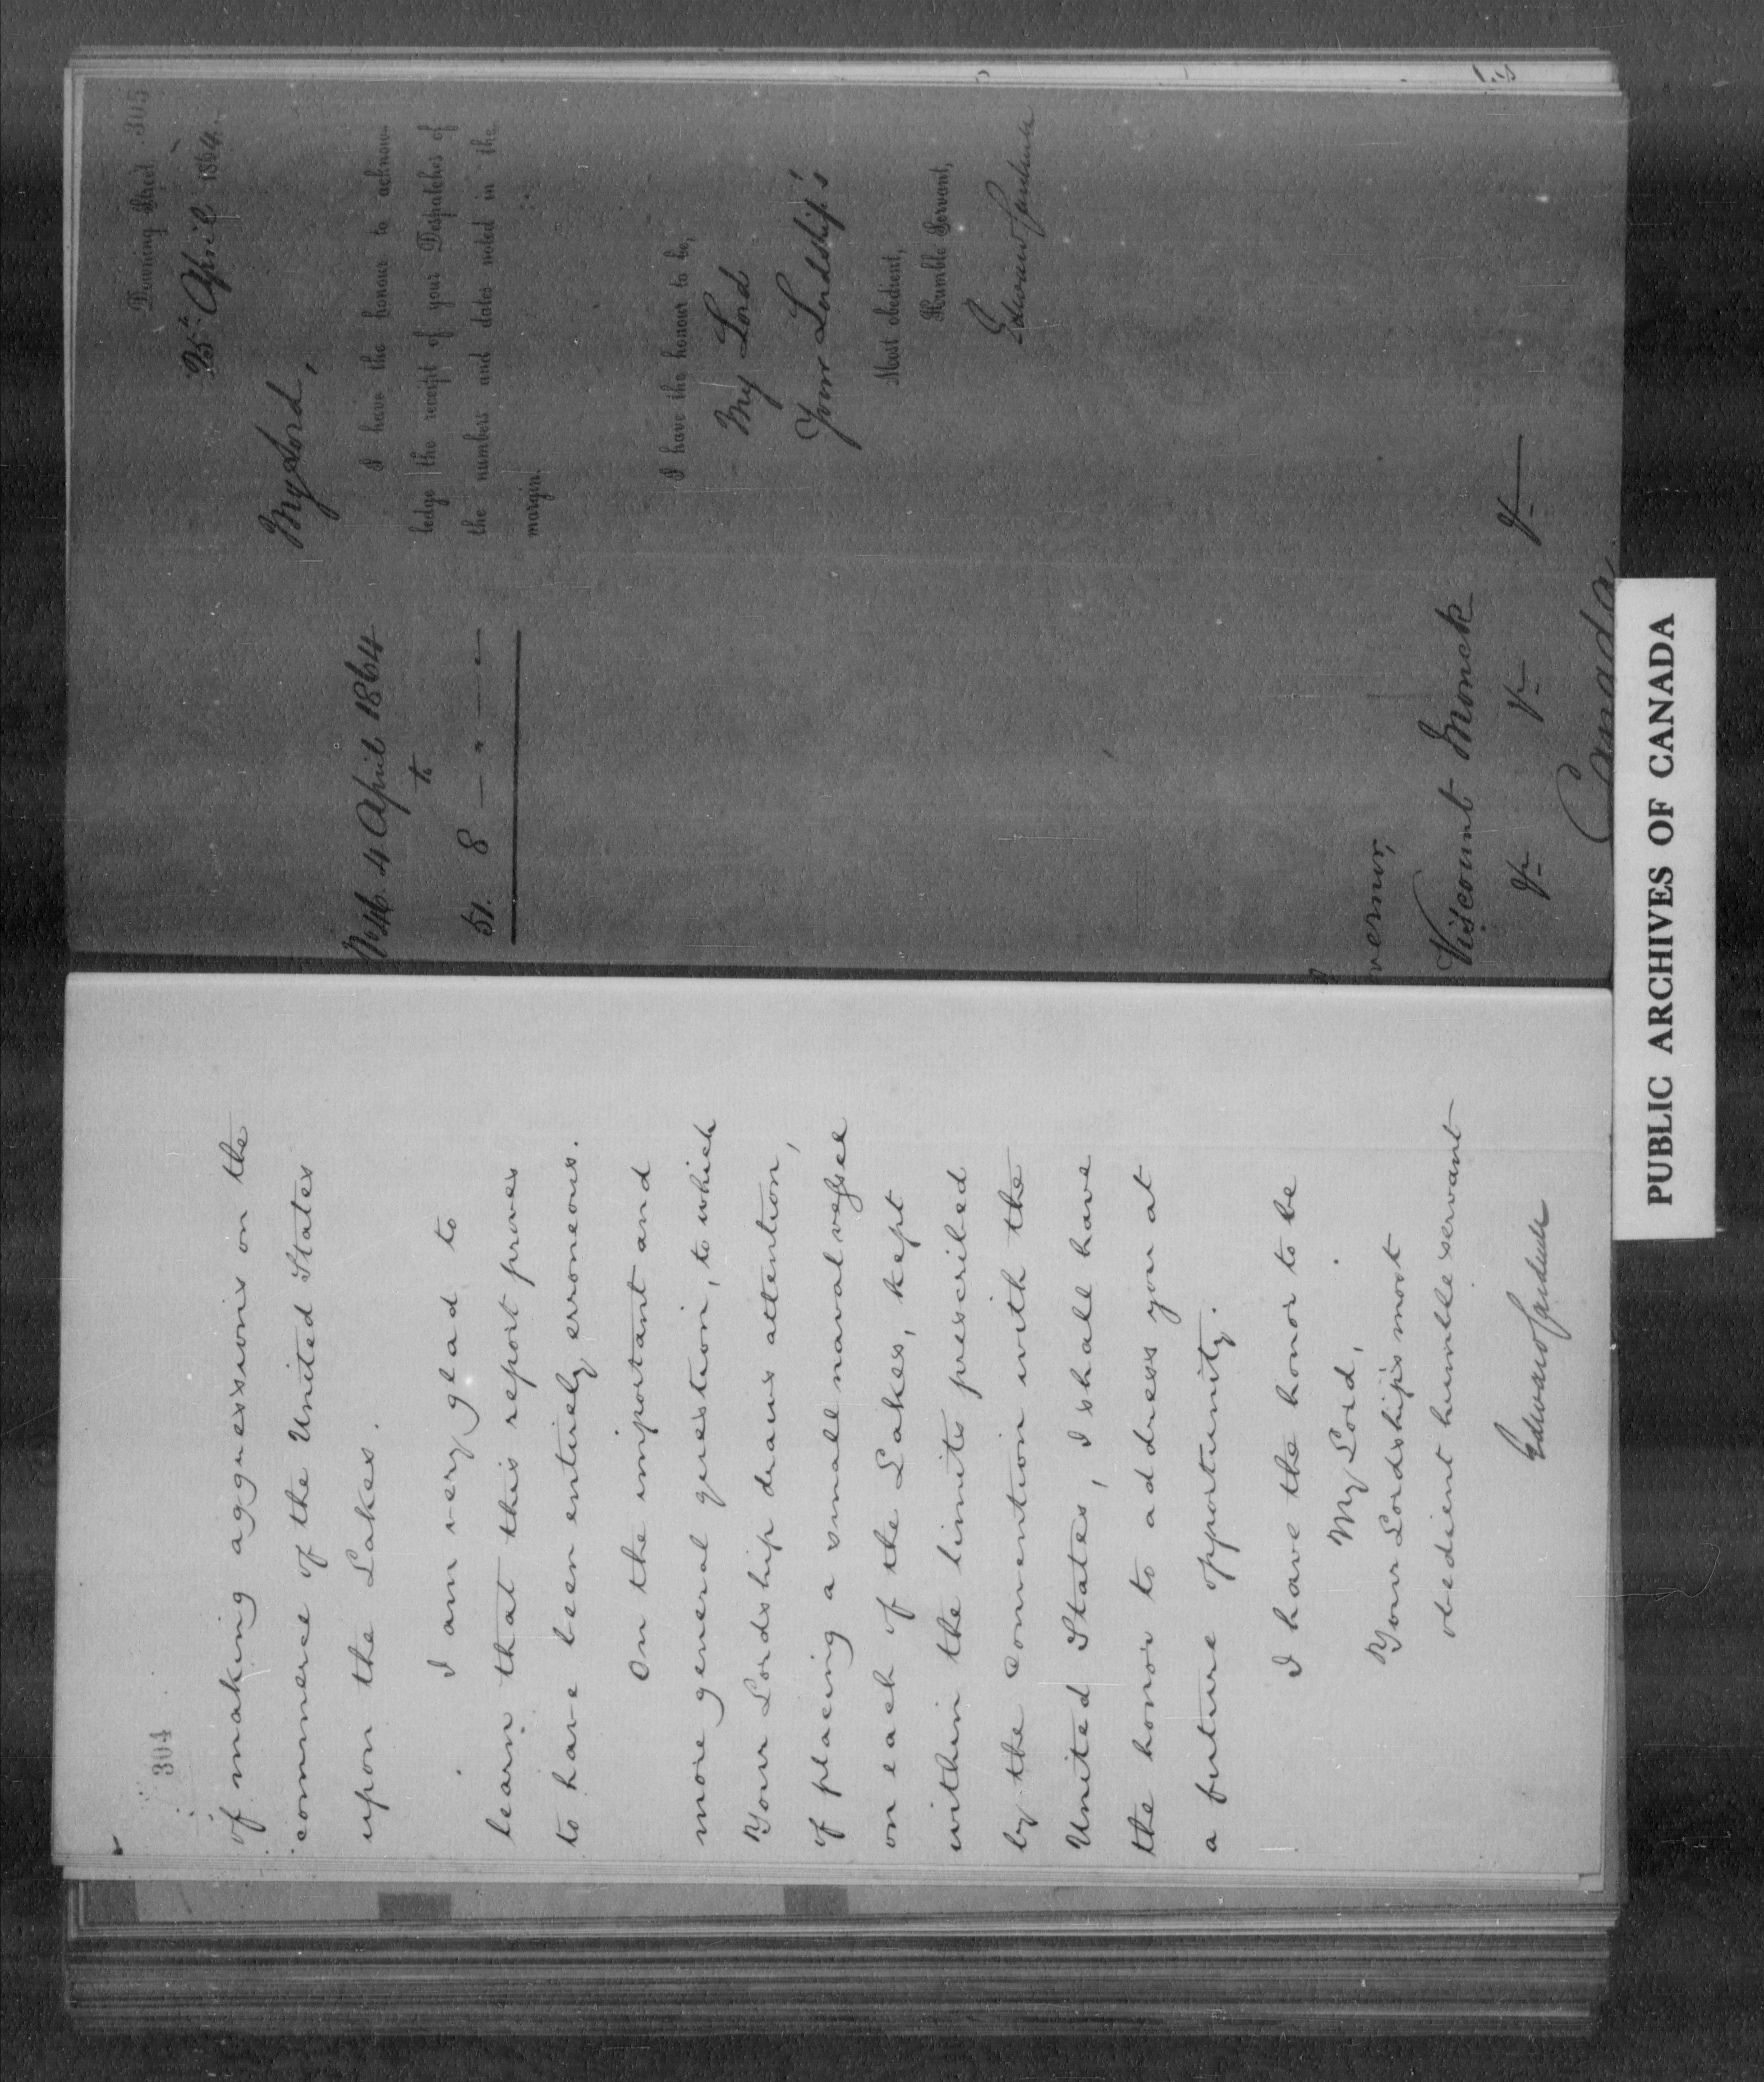 304
of making aggressions on the
commerce of the United States
upon the Lakes.
I am very glad to
learn that this report proves
to have been entirely erroneous.
On the important and
more general question, to which
Your Lordship draws attention,
of placing a small naval vessel
on each of the Lakes, kept
within the limits prescribed
by the Convention with the
United States, I shall have
the honor to address you at
a future opportunity.
I have the honor to be
My Lord,
Your Lordship's most
obedient humble servant
Edward Cardwell
305
Downing Street
25th April 1864.
My Lord,
I have the honour to acknow-
ledge the receipt of your Despatches of
the numbers and dates noted in the
margin.
No 46. 4 April 1864
to
51. 8 — " —
I have the honour to be,
My Lord
Your Lordship's
Most obedient,
Humble Servant,
Edward Cardwell
vernor,
Viscount Monck
&c &c &c
Canada
PUBLIC ARCHIVES OF CANADA